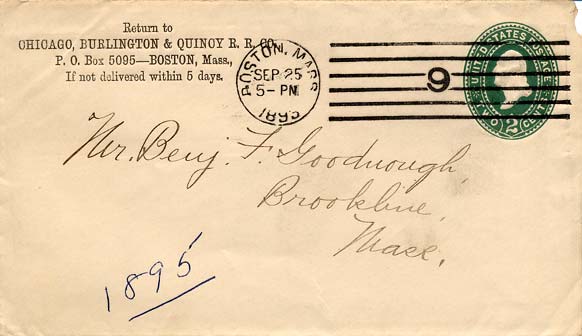 Return to
CHICAGO, BURLINGTON & QUINCY R. R. CO.
P. O. Box 5095—BOSTON, Mass.,
If not delivered within 5 days.
BOSTON, MASS.
SEP 25
5-PM
1895
9
UNITED STATES POSTAGE
TWO 2 CENTS
Mr. Benj. F. Goodnough,
Brookline,
Mass.
1895